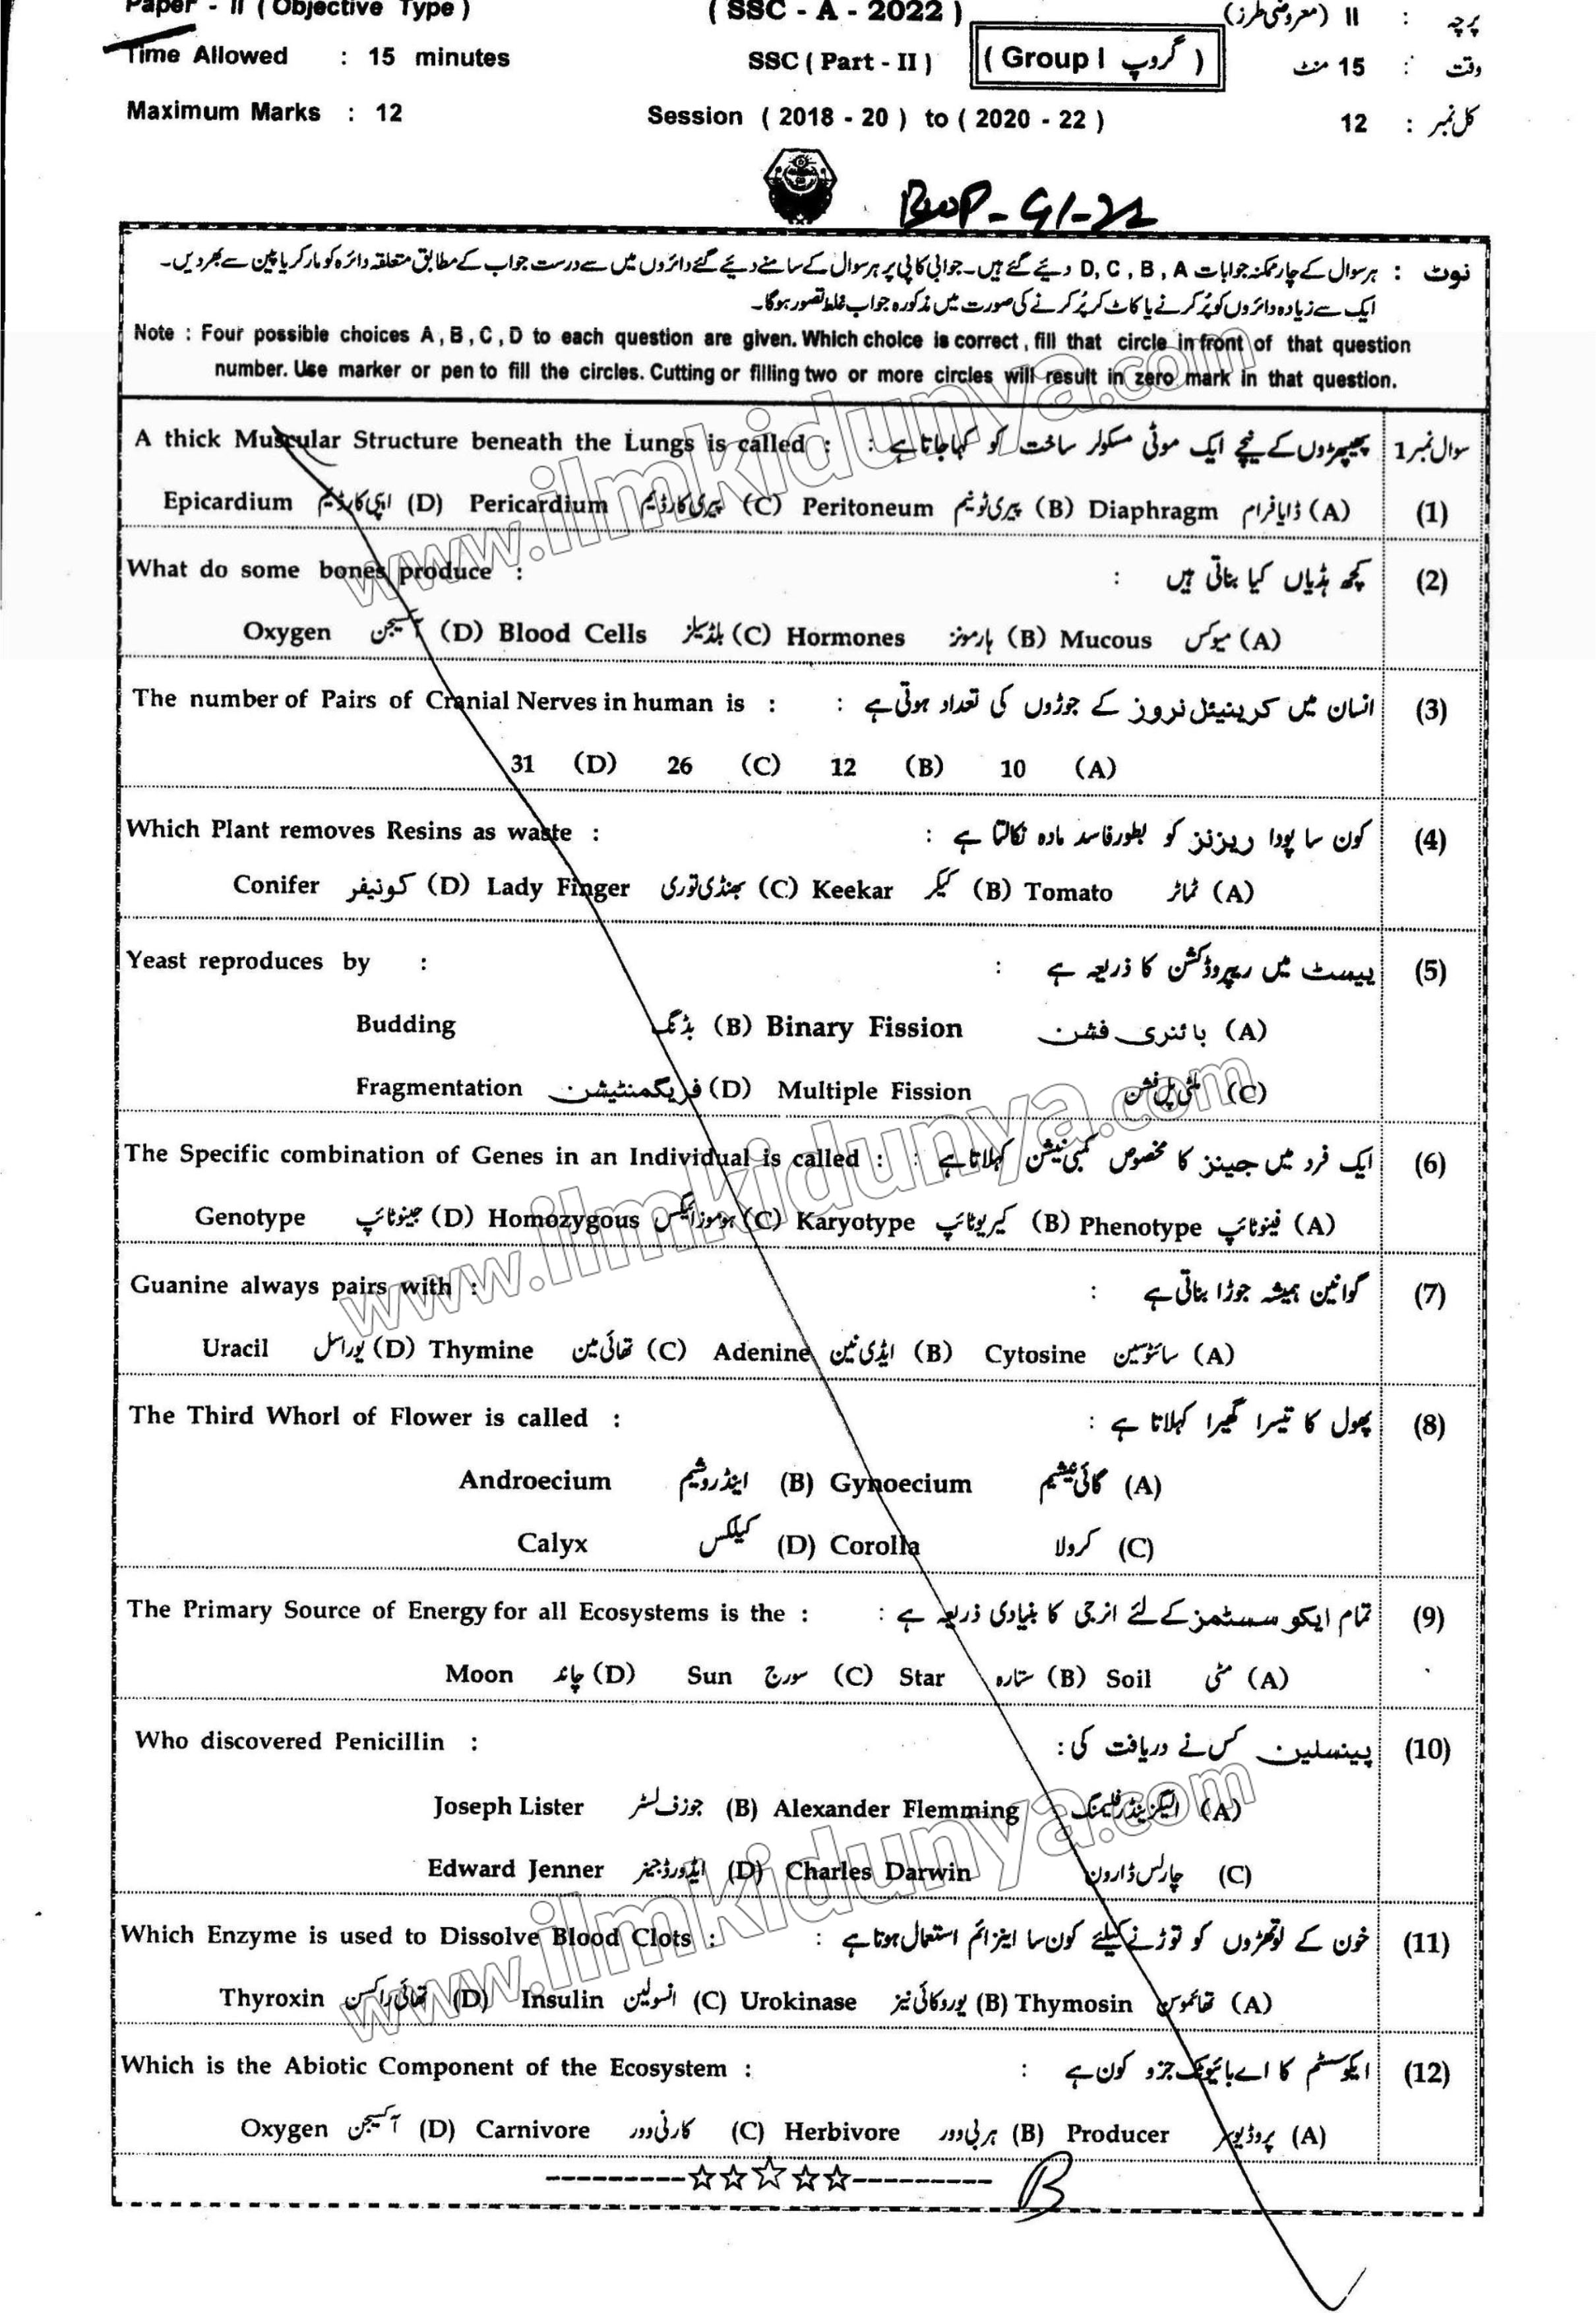 Paper - II ( Objective Type ) ( SSC - A - 2022 ) پرچہ : II (معروضی طرز)
Time Allowed : 15 minutes SSC ( Part - II ) ( Group I گروپ ) وقت : 15 منٹ
Maximum Marks : 12 Session ( 2018 - 20 ) to ( 2020 - 22 ) کل نمبر : 12
BWP - G1-22
نوٹ : ہر سوال کے چار ممکنہ جوابات D, C, B, A دیئے گئے ہیں۔ جوابی کاپی پر ہر سوال کے سامنے دیئے گئے دائروں میں سے درست جواب کے مطابق متعلقہ دائرہ کو مارکر یا پین سے بھر دیں۔
ایک سے زیادہ دائروں کو پُر کرنے یا کاٹ کر پُر کرنے کی صورت میں مذکورہ جواب غلط تصور ہوگا۔
Note : Four possible choices A , B , C , D to each question are given. Which choice is correct , fill that circle in front of that question
number. Use marker or pen to fill the circles. Cutting or filling two or more circles will result in zero mark in that question.
A thick Muscular Structure beneath the Lungs is called : پھیپھڑوں کے نیچے ایک موٹی مسکولر ساخت کو کہا جاتا ہے : سوال نمبر 1
Epicardium اپی کارڈیم (D) Pericardium پیری کارڈیم (C) Peritoneum پیری ٹونیم (B) Diaphragm ڈایافرام (A) (1)
What do some bones produce : کچھ ہڈیاں کیا بناتی ہیں : (2)
Oxygen آکسیجن (D) Blood Cells بلڈ سیلز (C) Hormones ہارمونز (B) Mucous میوکس (A)
The number of Pairs of Cranial Nerves in human is : انسان میں کرینیئل نروز کے جوڑوں کی تعداد ہوتی ہے : (3)
31 (D) 26 (C) 12 (B) 10 (A)
Which Plant removes Resins as waste : کون سا پودا ریزنز کو بطور فاسد مادہ نکالتا ہے : (4)
Conifer کونیفر (D) Lady Finger بھنڈی توری (C) Keekar کیکر (B) Tomato ٹماٹر (A)
Yeast reproduces by : ییسٹ میں ریپروڈکشن کا ذریعہ ہے : (5)
Budding بڈنگ (B) Binary Fission بائنری فشن (A)
Fragmentation فریگمنٹیشن (D) Multiple Fission ملٹی پل فشن (C)
The Specific combination of Genes in an Individual is called : ایک فرد میں جینز کا مخصوص کمبی نیشن کہلاتا ہے : (6)
Genotype جینوٹائپ (D) Homozygous ہوموزائیگس (C) Karyotype کیریوٹائپ (B) Phenotype فینوٹائپ (A)
Guanine always pairs with : گوانین ہمیشہ جوڑا بناتی ہے : (7)
Uracil یوراسل (D) Thymine تھائی مین (C) Adenine ایڈی نین (B) Cytosine سائٹوسین (A)
The Third Whorl of Flower is called : پھول کا تیسرا گھیرا کہلاتا ہے : (8)
Androecium اینڈروشیم (B) Gynoecium گائی نیشیم (A)
Calyx کیلکس (D) Corolla کرولا (C)
The Primary Source of Energy for all Ecosystems is the : تمام ایکو سسٹمز کے لئے انرجی کا بنیادی ذریعہ ہے : (9)
Moon چاند (D) Sun سورج (C) Star ستارہ (B) Soil مٹی (A)
Who discovered Penicillin : پینسلین کس نے دریافت کی : (10)
Joseph Lister جوزف لسٹر (B) Alexander Flemming الیگزینڈر فلیمنگ (A)
Edward Jenner ایڈورڈ جینر (D) Charles Darwin چارلس ڈارون (C)
Which Enzyme is used to Dissolve Blood Clots : خون کے لوتھڑوں کو توڑنے کیلئے کون سا اینزائم استعمال ہوتا ہے : (11)
Thyroxin تھائی راکسن (D) Insulin انسولین (C) Urokinase یوروکائی نیز (B) Thymosin تھائموسن (A)
Which is the Abiotic Component of the Ecosystem : ایکوسسٹم کا اے بائیوٹک جزو کون ہے : (12)
Oxygen آکسیجن (D) Carnivore کارنی وور (C) Herbivore ہربی وور (B) Producer پروڈیوسر (A)
B
www.ilmkidunya.com
www.ilmkidunya.com
www.ilmkidunya.com